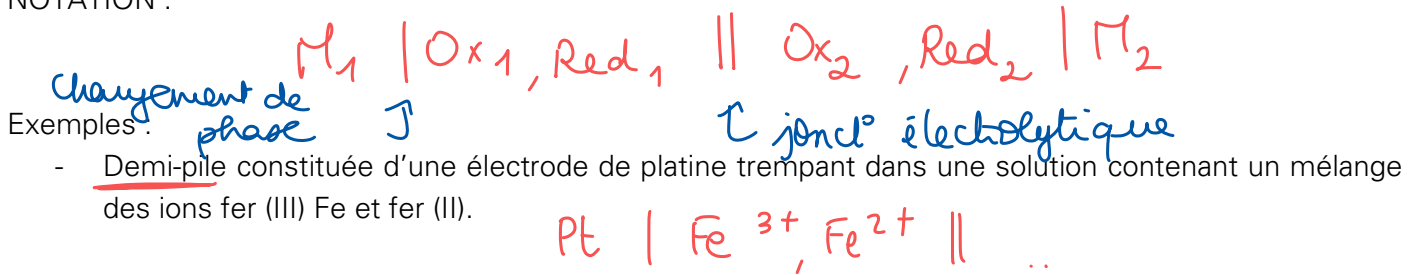 NOTATION :
M₁ | Ox₁, Red₁ || Ox₂, Red₂ | M₂
changement de phase
jonct° électrolytique
Exemples :
- Demi-pile constituée d'une électrode de platine trempant dans une solution contenant un mélange
des ions fer (III) Fe et fer (II).
Pt | Fe³⁺, Fe²⁺ || ..